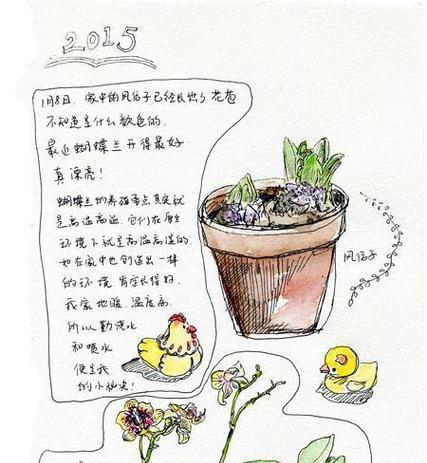 2015
1月8日，家中的风信子已经长出了花苞
不知道是什么颜色的.
最近蝴蝶兰开得最好
真漂亮！
蝴蝶兰的养殖要点其实就
是高温高湿，它们在原生
环境下就是高温高湿的.
如在家中也创造出一样
的环境 肯定长得好.
我家地暖，温度高
所以勤浇水
和喷水
便是我
的小秘决！
风信子